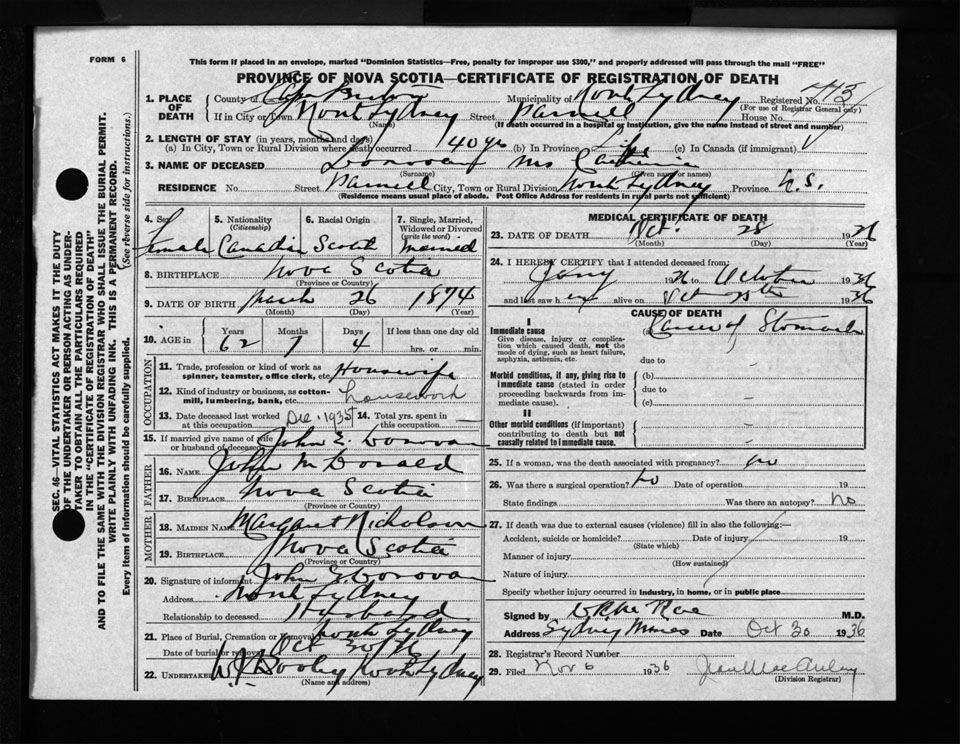 FORM 6
This form if placed in an envelope, marked "Dominion Statistics—Free, penalty for improper use $300," and properly addressed will pass through the mail "FREE"
PROVINCE OF NOVA SCOTIA—CERTIFICATE OF REGISTRATION OF DEATH
SEC. 46—VITAL STATISTICS ACT MAKES IT THE DUTY
OF THE UNDERTAKER OR PERSON ACTING AS UNDER-
TAKER TO OBTAIN ALL THE PARTICULARS REQUIRED
IN THE "CERTIFICATE OF REGISTRATION OF DEATH"
AND TO FILE THE SAME WITH THE DIVISION REGISTRAR WHO SHALL ISSUE THE BURIAL PERMIT.
WRITE PLAINLY WITH UNFADING INK. THIS IS A PERMANENT RECORD.
Every item of information should be carefully supplied. (See reverse side for instructions.)
1. PLACE OF DEATH County of Cape Breton Municipality of North Sydney Registered No.
(For use of Registrar General only)
If in City or Town North Sydney Street House No.
(Name) (If death occurred in a hospital or institution, give the name instead of street and number)
2. LENGTH OF STAY (in years, months and days)
(a) In City, Town or Rural Division where death occurred 40 yrs (b) In Province Life (c) In Canada (if immigrant)
3. NAME OF DECEASED Donovan Mrs Catherine
(Surname) (Given name or names)
RESIDENCE No. Street City, Town or Rural Division North Sydney Province N.S.
(Residence means usual place of abode. Post Office Address for residents in rural parts not sufficient)
4. Sex Female
5. Nationality (Citizenship) Canadian
6. Racial Origin Scotch
7. Single, Married, Widowed or Divorced (write the word) Married
8. BIRTHPLACE Nova Scotia
(Province or Country)
9. DATE OF BIRTH March 26 1874
(Month) (Day) (Year)
10. AGE in Years 62 Months 7 Days 4 If less than one day old hrs. or min.
OCCUPATION
11. Trade, profession or kind of work as spinner, teamster, office clerk, etc. Housewife
12. Kind of industry or business, as cotton-mill, lumbering, bank, etc. housework
13. Date deceased last worked at this occupation Dec. 1935 14. Total yrs. spent in this occupation —
15. If married give name of wife or husband of deceased John E. Donovan
FATHER
16. NAME John McDonald
17. BIRTHPLACE Nova Scotia
(Province or Country)
MOTHER
18. MAIDEN NAME Margaret Nicholson
19. BIRTHPLACE Nova Scotia
(Province or Country)
20. Signature of informant John E Donovan
Address North Sydney
Relationship to deceased Husband
21. Place of Burial, Cremation or Removal North Sydney
Date of burial or removal Oct 30/36
22. UNDERTAKER W. J. Dooley North Sydney
(Name and address)
MEDICAL CERTIFICATE OF DEATH
23. DATE OF DEATH Oct. 28 1936
(Month) (Day) (Year)
24. I HEREBY CERTIFY that I attended deceased from:
Jany 1936 to October 1936
and last saw her alive on Oct 25th 1936
CAUSE OF DEATH
I
Immediate cause (a) Cancer of Stomach
Give disease, injury or complication which caused death, not the mode of dying, such as heart failure, asphyxia, asthenia, etc.
due to
Morbid conditions, if any, giving rise to immediate cause (stated in order proceeding backwards from immediate cause). (b)
due to
(c)
II
Other morbid conditions (if important) contributing to death but not causally related to immediate cause.
25. If a woman, was the death associated with pregnancy? no
26. Was there a surgical operation? no Date of operation 19
State findings Was there an autopsy? no
27. If death was due to external causes (violence) fill in also the following:—
Accident, suicide or homicide? Date of injury 19
(State which)
Manner of injury
(How sustained)
Nature of injury
Specify whether injury occurred in industry, in home, or in public place
Signed by M.D.
Address Sydney Mines Date Oct 30 1936
28. Registrar's Record Number
29. Filed Nov 6 1936 Jean MacAulay
(Division Registrar)